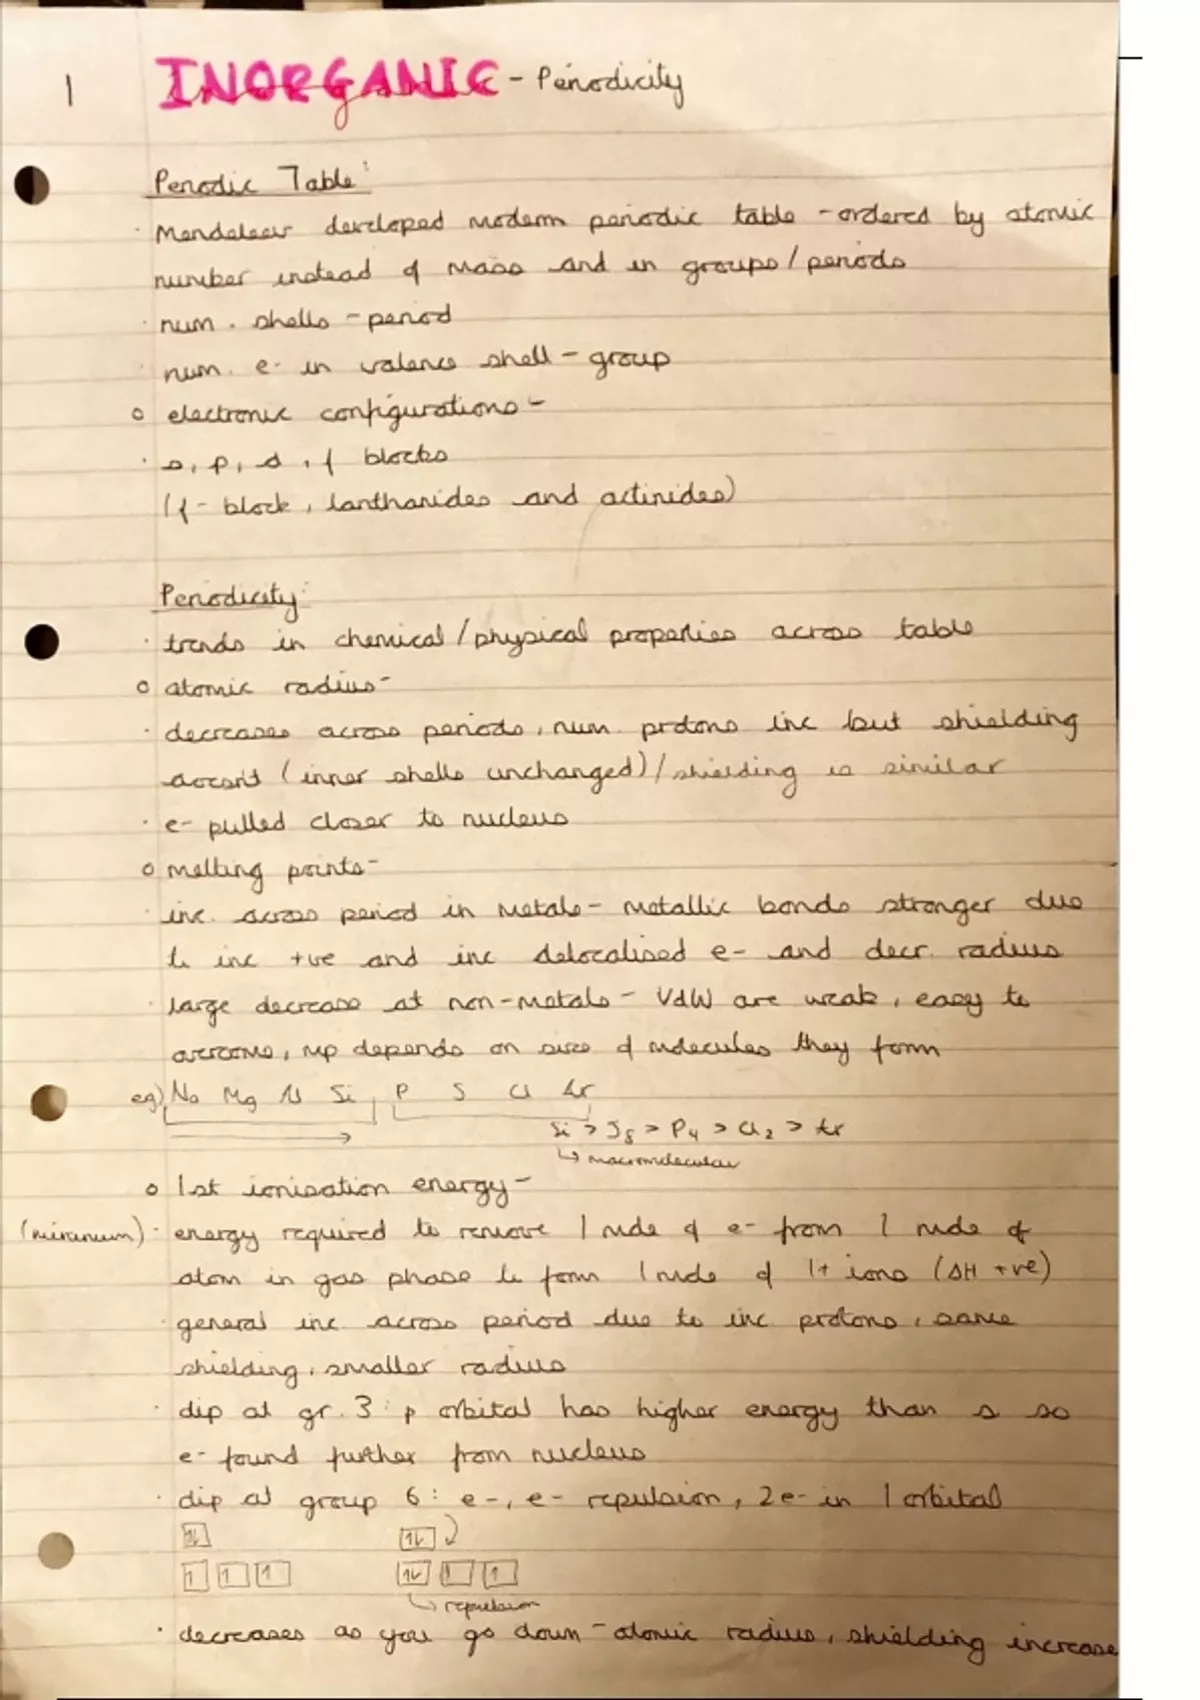 1
INORGANIC - Periodicity
Periodic Table:
· Mendeleev developed modern periodic table - ordered by atomic
number instead of mass and in groups / periods
· num. shells - period
· num. e- in valence shell - group
o electronic configurations -
· s, p, d, f blocks
(f- block, lanthanides and actinides)
Periodicity:
· trends in chemical / physical properties across table
o atomic radius -
· decreases across periods, num. protons inc but shielding
doesn't (inner shells unchanged) / shielding is similar
· e- pulled closer to nucleus
o melting points -
· inc. across period in metals - metallic bonds stronger due
to inc +ve and inc delocalised e- and decr. radius
· large decrease at non-metals - VdW are weak, easy to
overcome, mp depends on size of molecules they form
eg) Na Mg Al Si, P S Cl Ar
Si > S8 > P4 > Cl2 > Ar
↳ macromolecular
o 1st ionisation energy -
(minimum) · energy required to remove 1 mole of e- from 1 mole of
atom in gas phase to form 1 mole of 1+ ions (ΔH +ve)
· general inc. across period due to inc. protons, same
shielding, smaller radius
· dip at gr. 3: p orbital has higher energy than s so
e- found further from nucleus
· dip at group 6: e-, e- repulsion, 2e- in 1 orbital
↳ repulsion
· decreases as you go down - atomic radius, shielding increase